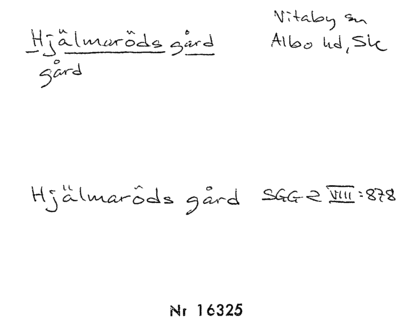 Hjälmaröds gård
gård
Vitaby sn
Albo hd, Sk
Hjälmaröds gård SGG 2 VIII:878
Nr 16325